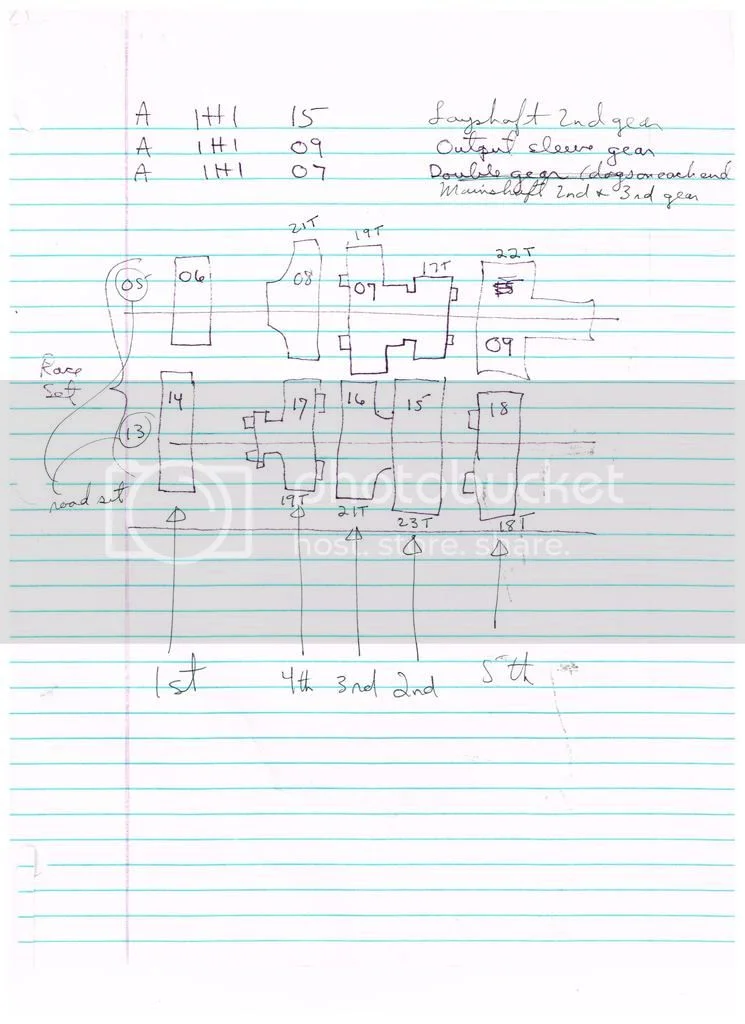 A 1H1 15 Layshaft 2nd gear
A 1H1 09 Output sleeve gear
A 1H1 07 Double gear (dogs on each end
Mainshaft 2nd & 3rd gear
21T 19T 17T 22T
05 06 08 07
09
Race
Set
14 17 16 15 18
13
photobucket
road set 19T 21T 23T 18T
host. store. share.
1st 4th 3rd 2nd 5th